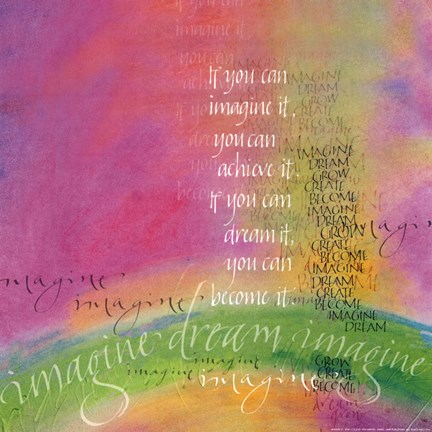 If you can
imagine it,
you can
achieve it.
If you can
dream it,
you can
become it.
IMAGINE
DREAM
GROW
CREATE
BECOME
IMAGINE
DREAM
GROW
CREATE
BECOME
IMAGINE
DREAM
GROW
CREATE
BECOME
IMAGINE
DREAM
CREATE
BECOME
IMAGINE
DREAM
imagine
imagine
imagine
imagine dream imagine
imagine
imagine
imagine
GROW
CREATE
BECOME
dream